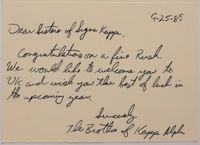 9-25-85
Dear Sisters of Sigma Kappa,
Congratulations on a fine Rush.
We would like to welcome you to
UK and wish you the best of luck in
the upcoming year.
Sincerely
The Brothers of Kappa Alpha